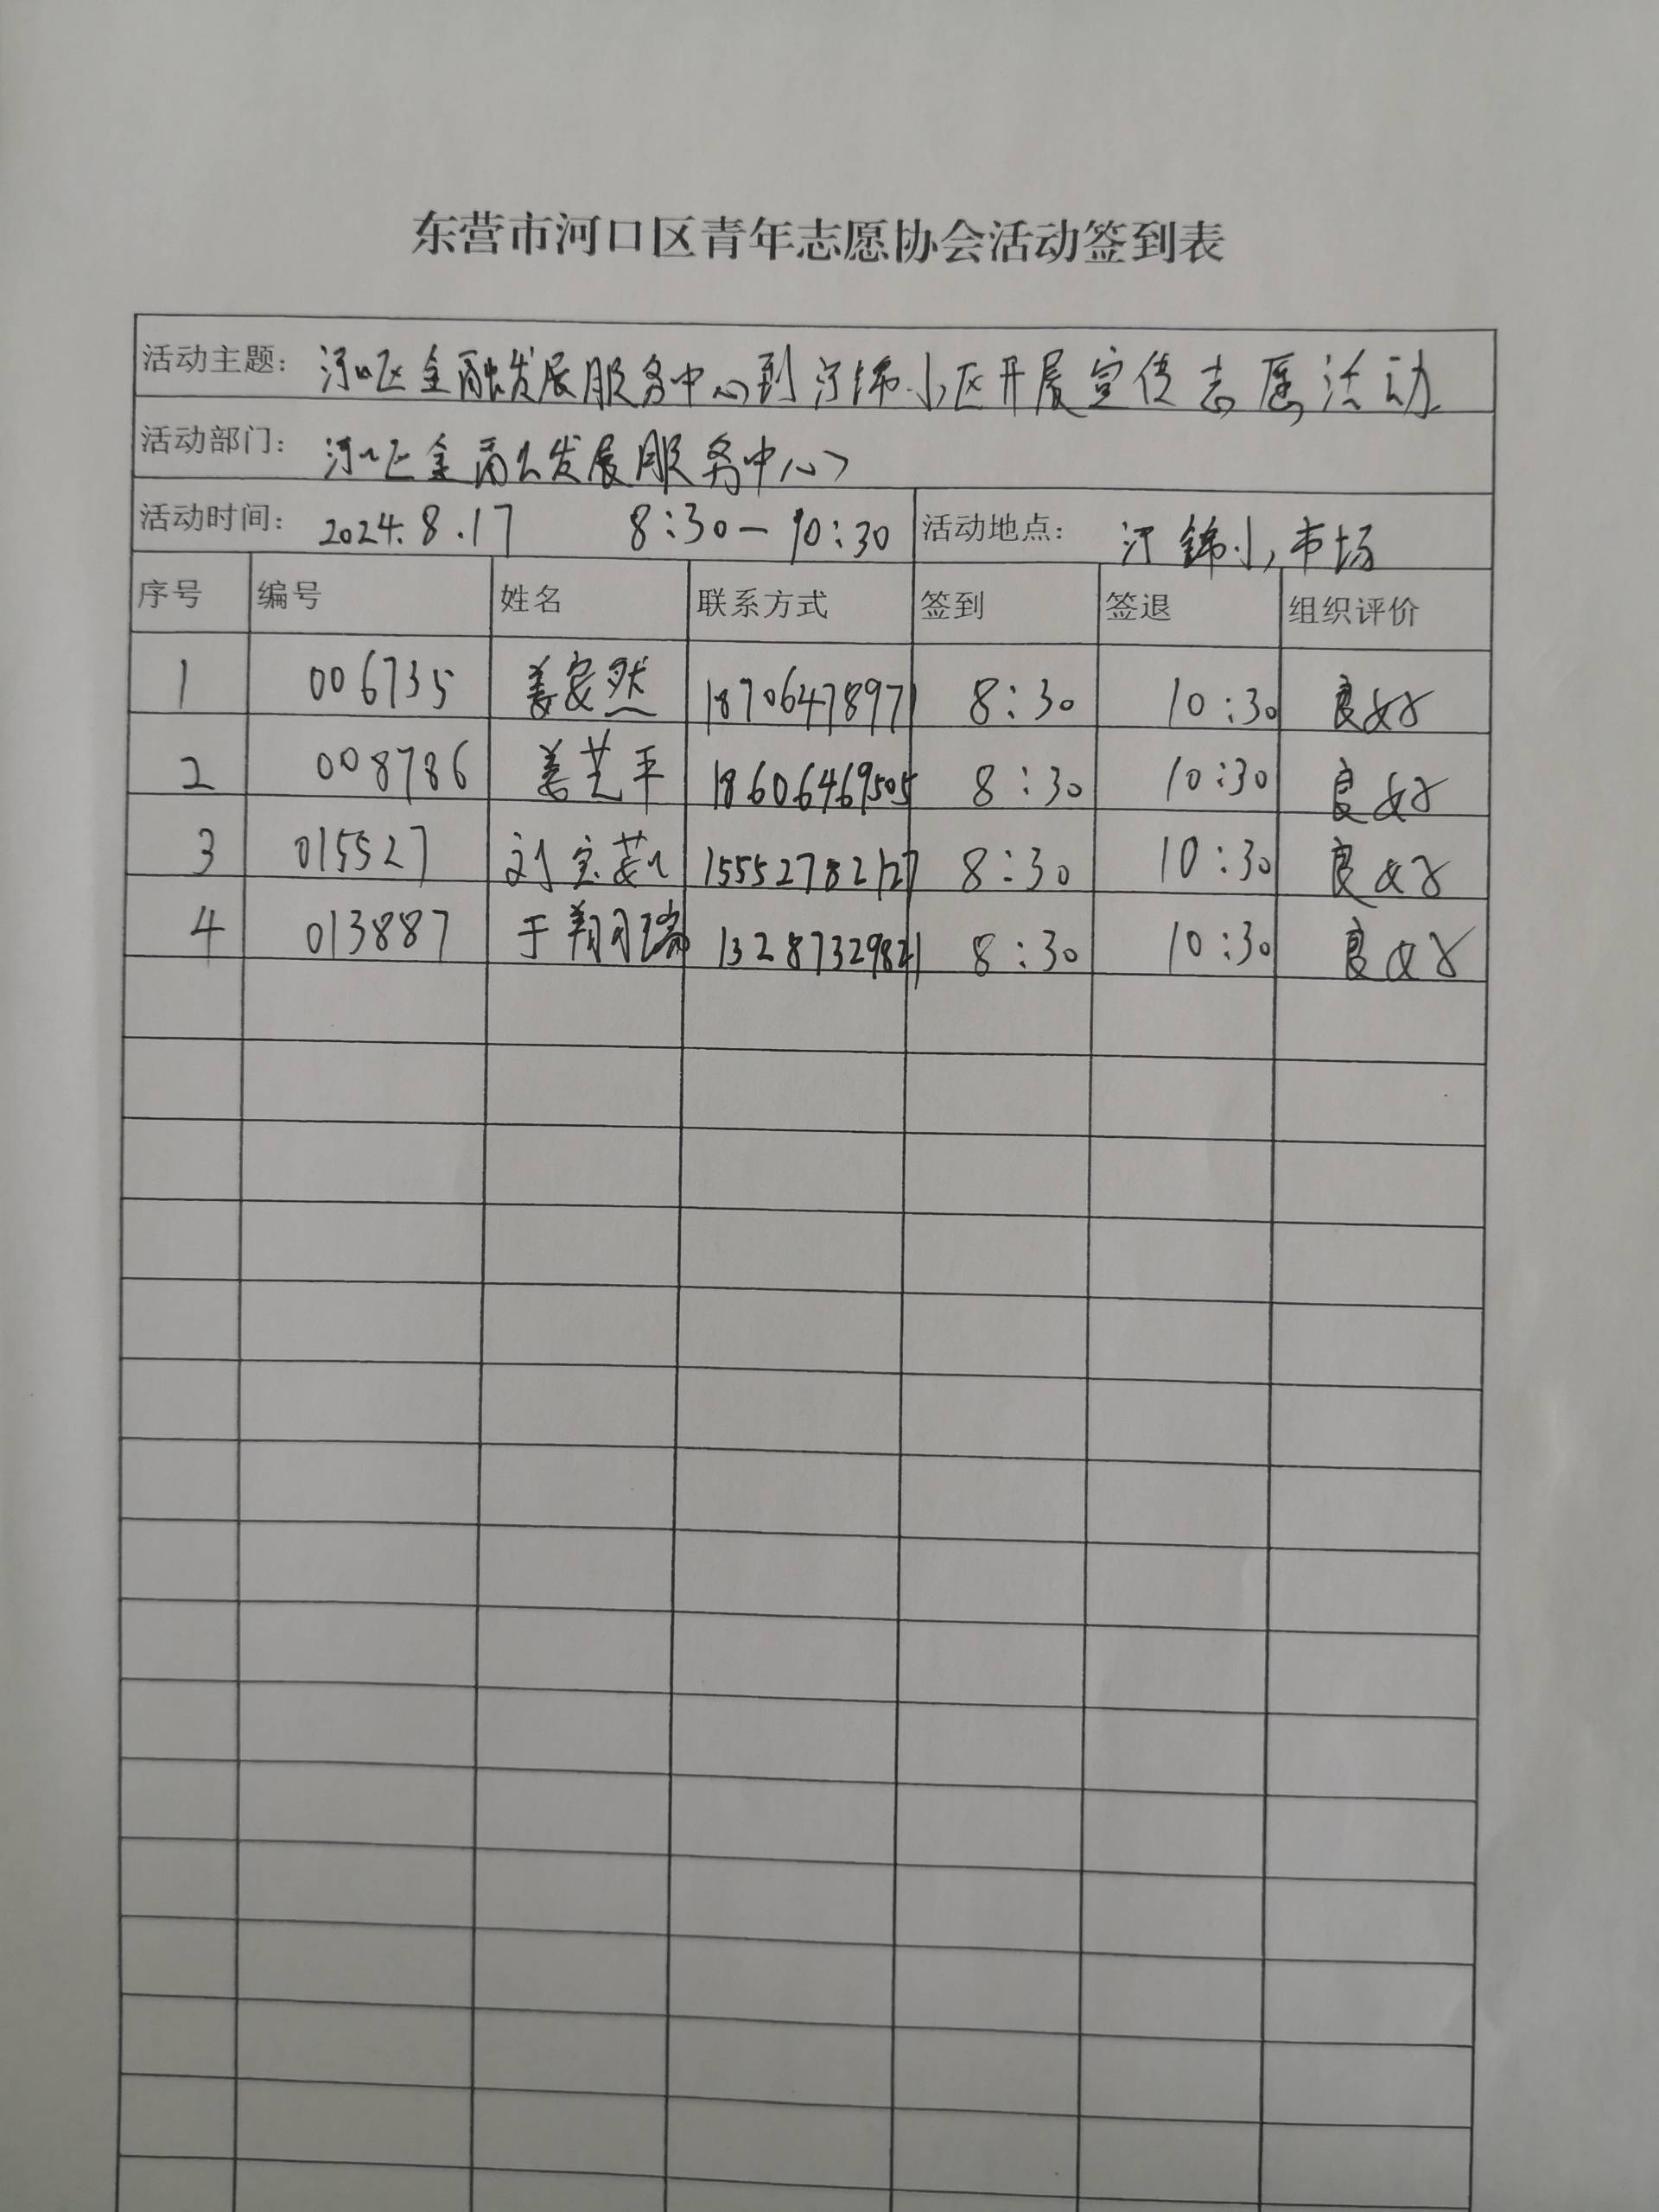 东营市河口区青年志愿协会活动签到表
活动主题： 河口区金融发展服务中心到河锦小区开展宣传志愿活动
活动部门： 河口区金融发展服务中心
活动时间： 2024.8.17 8:30—10:30 活动地点： 河锦小市场
序号 编号 姓名 联系方式 签到 签退 组织评价
1 006735 姜安然 18706478971 8:30 10:30 良好
2 008786 姜芝平 18606469505 8:30 10:30 良好
3 015527 刘宝茹 15552782127 8:30 10:30 良好
4 013887 于翔瑞 13287329821 8:30 10:30 良好